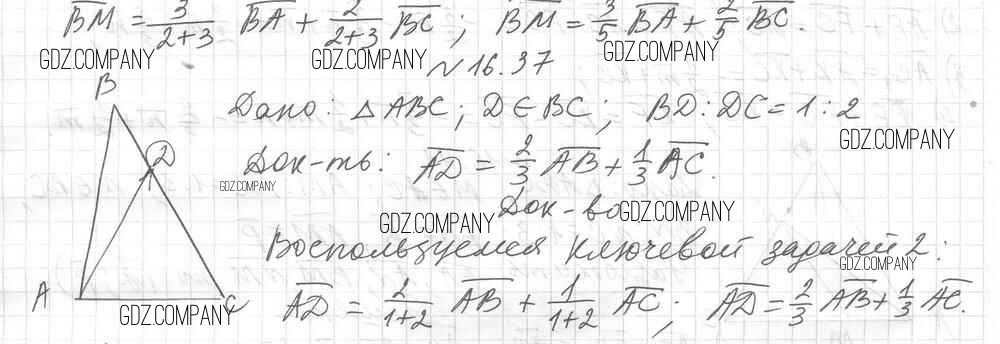 BM = 3/(2+3) BA + 2/(2+3) BC ; BM = 3/5 BA + 2/5 BC.
GDZ.COMPANY GDZ.COMPANY GDZ.COMPANY
№ 16.37
B
Дано: △ABC; D∈BC; BD:DC=1:2
GDZ.COMPANY
D
Док-ть: AD = 2/3 AB + 1/3 AC.
GDZ.COMPANY
GDZ.COMPANY Док-во GDZ.COMPANY
Воспользуемся ключевой задачей 2:
GDZ.COMPANY
A C
GDZ.COMPANY
AD = 2/(1+2) AB + 1/(1+2) AC; AD = 2/3 AB + 1/3 AC.